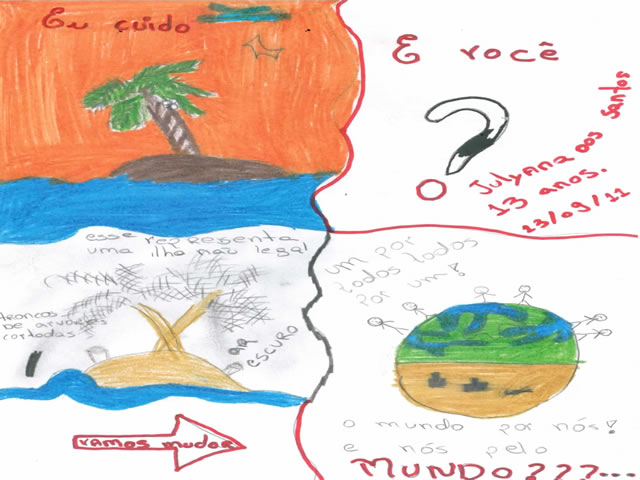 Eu cuido
E você
?
Julyana dos Santos
13 anos.
23/09/11
esse representa
uma ilha não legal
troncos
de arvores
cortadas
ar
escuro
vamos mudar
um por
todos todos
por um!
o mundo por nós!
e nós pelo
MUNDO???...